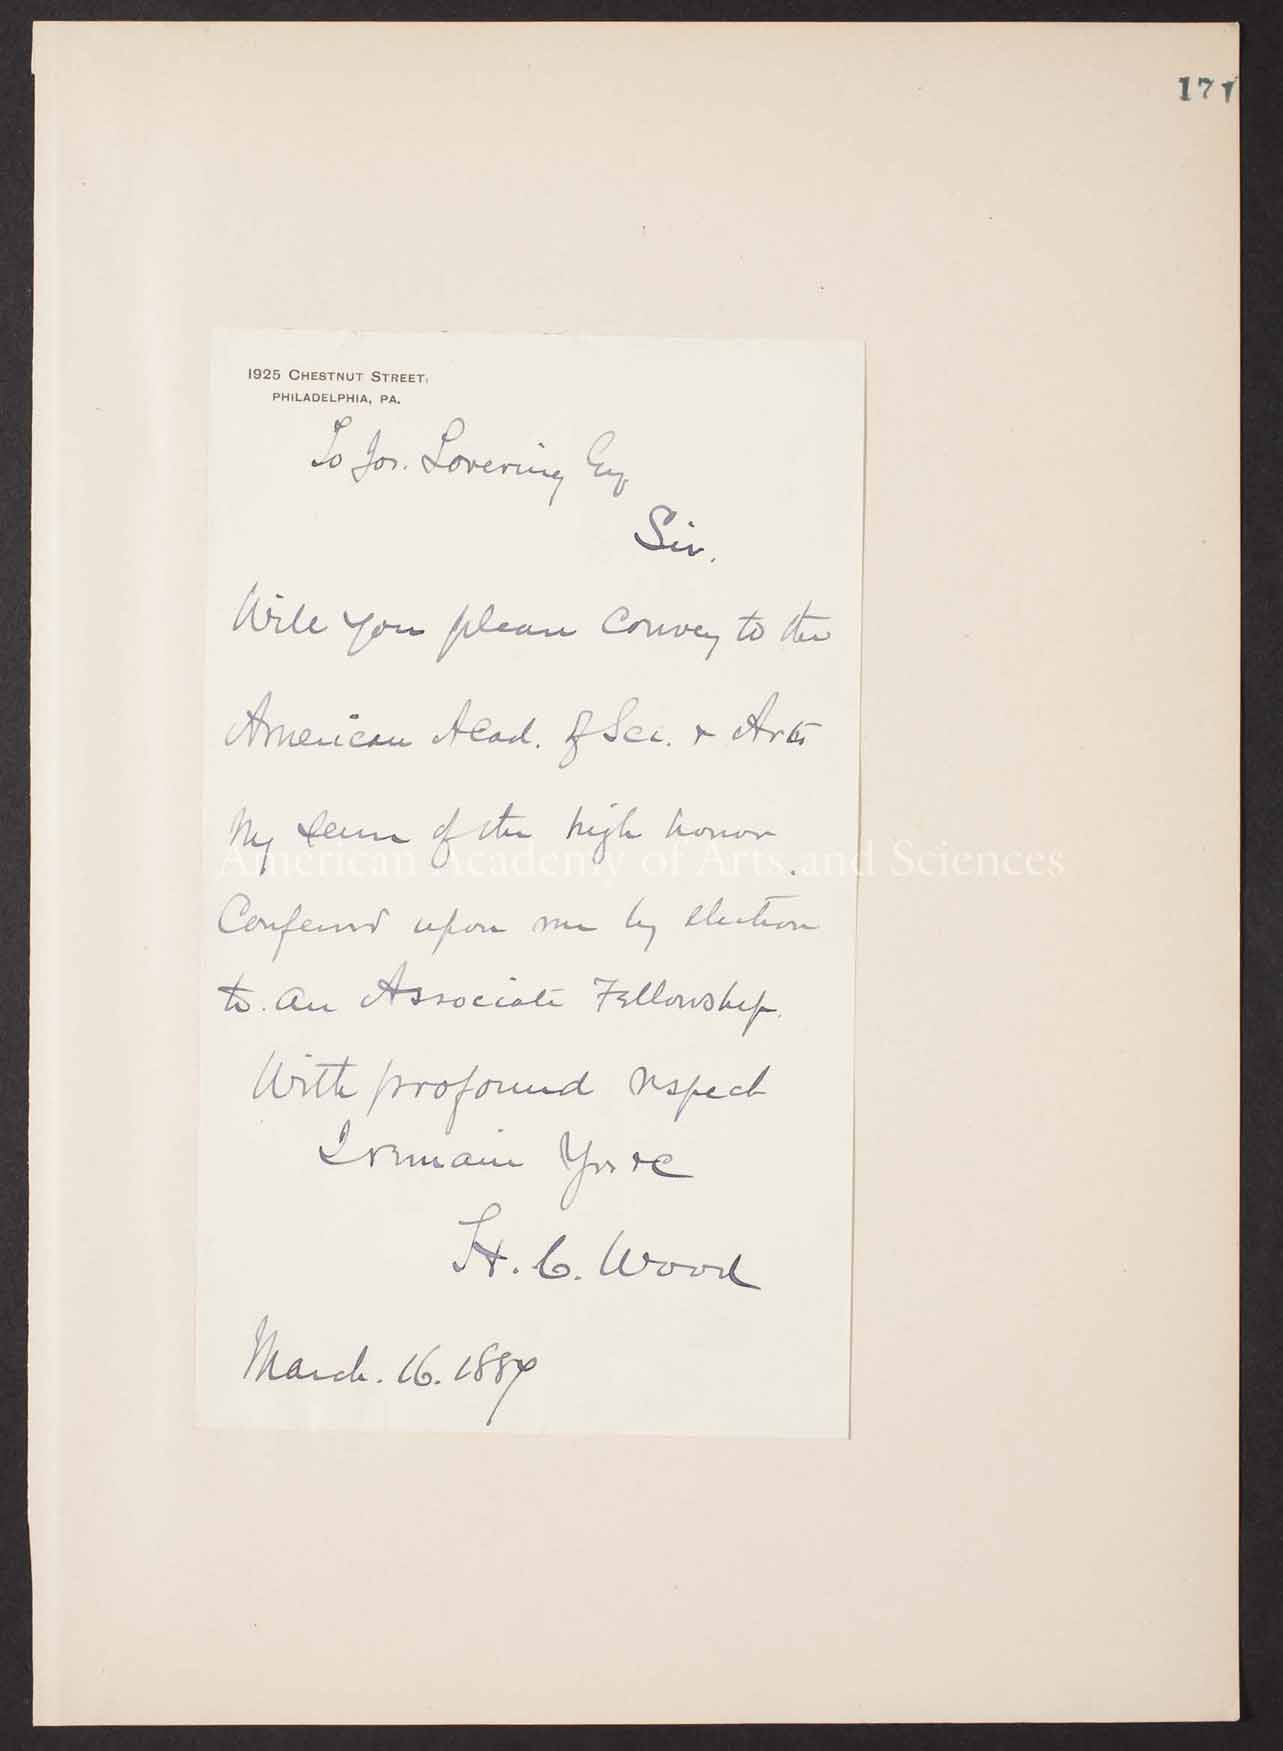 171
1925 CHESTNUT STREET,
PHILADELPHIA, PA.
To Jos. Lovering Esq
Sir.
Will you please convey to the
American Acad. of Sci. & Arts
My sense of the high honor
Conferred upon me by election
to an Associate Fellowship.
With profound respect
I remain Yours
H. C. Wood
March. 16. 188
American Academy of Arts and Sciences